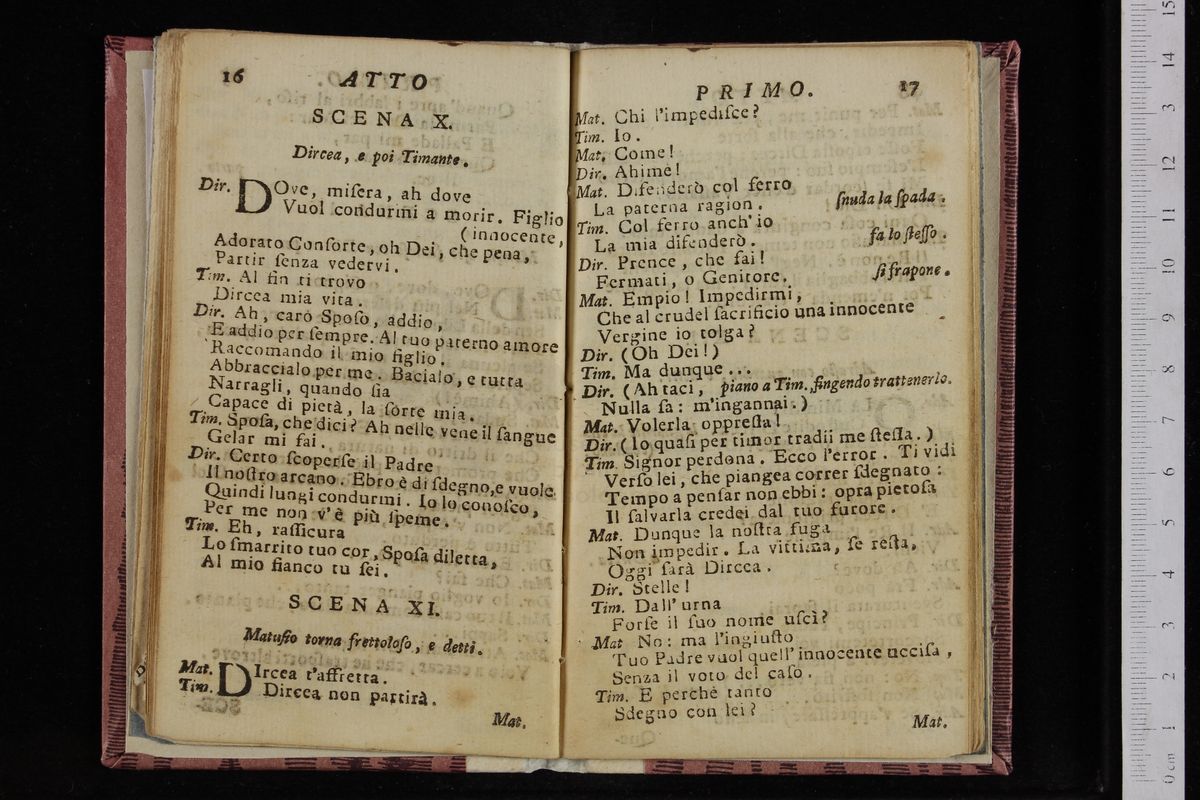 16 ATTO
SCENA X.
Dircea, e poi Timante.
Dir. DOve, miſera, ah dove
Vuol condurmi a morir. Figlio
(innocente,
Adorato Conſorte, oh Dei, che pena,
Partir ſenza vedervi.
Tim. Al fin ti trovo
Dircea mia vita.
Dir. Ah, caro Spoſo, addio,
E addio per ſempre. Al tuo paterno amore
Raccomando il mio figlio.
Abbraccialo per me. Bacialo, e tutta
Narragli, quando ſia
Capace di pietà, la ſorte mia.
Tim. Spoſa, che dici? Ah nelle vene il ſangue
Gelar mi fai.
Dir. Certo ſcoperſe il Padre
Il noſtro arcano. Ebro è di ſdegno, e vuole
Quindi lungi condurmi. Io lo conoſco,
Per me non v'è più ſpeme.
Tim. Eh, raſſicura
Lo ſmarrito tuo cor, Spoſa diletta,
Al mio fianco tu ſei.
SCENA XI.
Matuſio torna frettoloſo, e detti.
Mat. DIrcea t'affretta.
Tim. Dircea non partirà.
Mat.
PRIMO. 17
Mat. Chi l'impediſce?
Tim. Io.
Mat. Come!
Dir. Ahimè!
Mat. Difenderò col ferro
La paterna ragion. ſnuda la ſpada.
Tim. Col ferro anch'io
La mia difenderò. fa lo ſteſſo.
Dir. Prence, che fai!
Fermati, o Genitore. ſi frapone.
Mat. Empio! Impedirmi,
Che al crudel ſacrificio una innocente
Vergine io tolga?
Dir. (Oh Dei!)
Tim. Ma dunque...
Dir. (Ah taci, piano a Tim., fingendo trattenerlo.
Nulla ſa: m'ingannai.)
Mat. Volerla oppreſſa!
Dir. (Io quaſi per timor tradii me ſteſſa.)
Tim. Signor perdona. Ecco l'error. Ti vidi
Verſo lei, che piangea correr ſdegnato:
Tempo a penſar non ebbi: opra pietoſa
Il ſalvarla credei dal tuo furore.
Mat. Dunque la noſtra fuga
Non impedir. La vittima, ſe reſta,
Oggi ſarà Dircea.
Dir. Stelle!
Tim. Dall'urna
Forſe il ſuo nome uſcì?
Mat No: ma l'ingiuſto
Tuo Padre vuol quell'innocente ucciſa,
Senza il voto del caſo.
Tim. E perchè tanto
Sdegno con lei?
Mat.